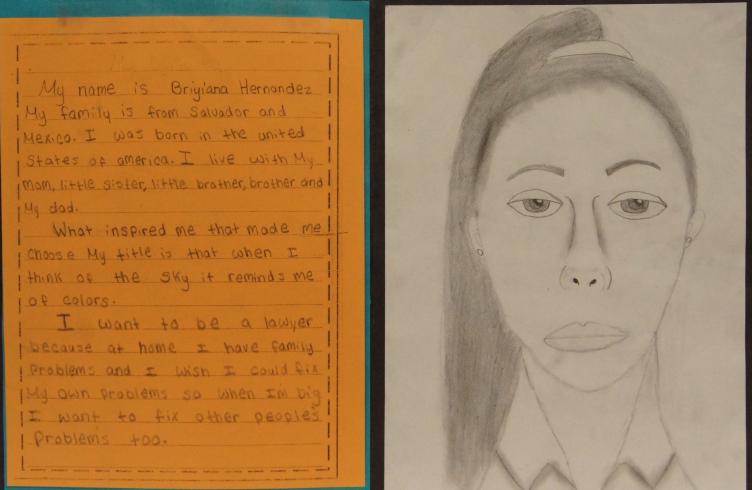 My name is Briyiana Hernandez
My family is from Salvador and
Mexico. I was born in the united
States of america. I live with My
mom, little sister, little brother, brother and
My dad.
What inspired me that made me
choose My title is that when I
think of the sky it reminds me
of colors.
I want to be a lawyer
because at home I have family
Problems and I wish I could fix
My own problems so when I'm big
I want to fix other people's
Problems too.